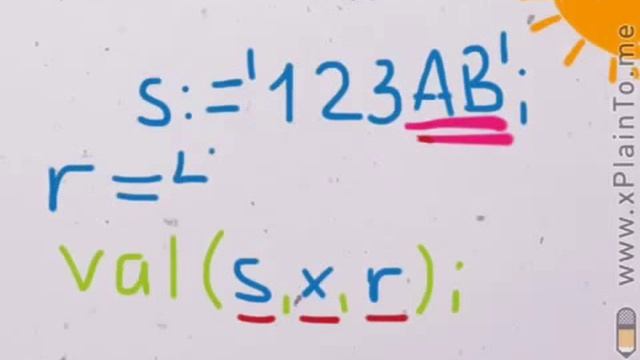 s:='123AB';
r=
val(s,x,r);
www.xPlainTo.me